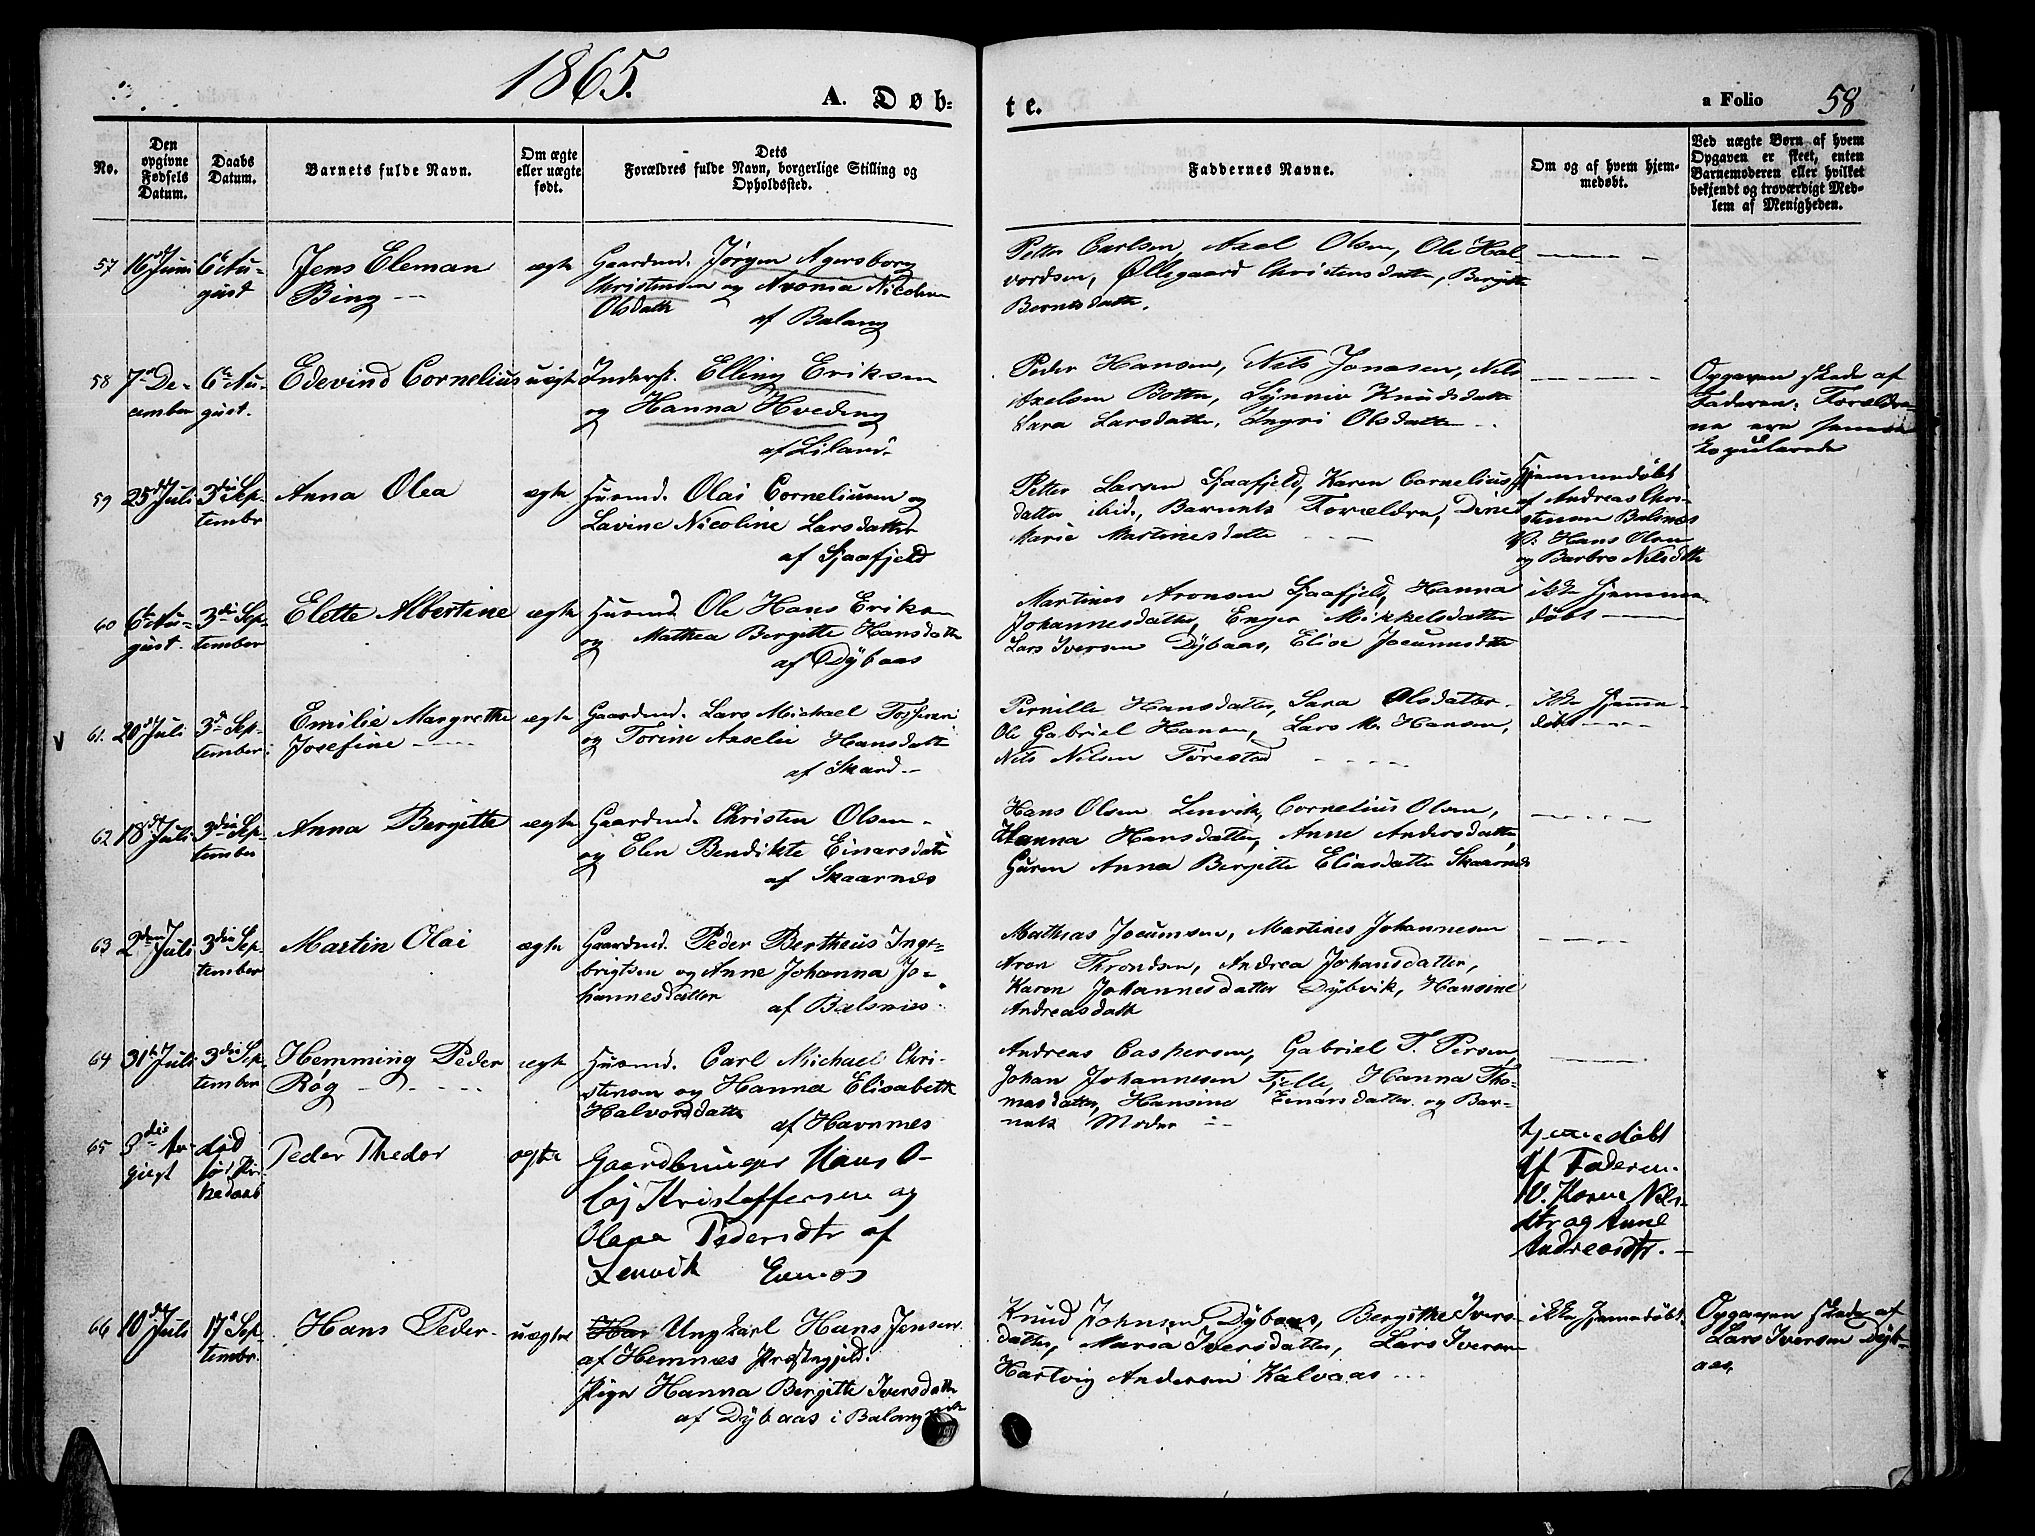 1865.
A. Døb-
te.
a Folio 58
No.
Den
opgivne
Fødsels
Datum.
Daabs
Datum.
Barnets fulde Navn.
Om ægte
eller uægte
født.
Dets
Forældres fulde Navn, borgerlige Stilling og
Opholdssted.
Faddernes Navne.
Om og af hvem hjem-
medøbt.
Ved uægte Børn af hvem
Opgaven er skeet, enten
Barnemoderen eller hvilket
bekjendt og troværdigt Med-
lem af Menigheden.
57
16de Juni
6te Au-
gust
Jens Eleman
Bing
ægte
Gaardmd. Jørgen Agersborg
Christensen og Nicoline
Olsdatter
af Balang
Petter Carlsen, Axel Olsen, Ole Hal-
vordsen, Øllegaard Christensdatter, Bergitte
Berntsdatter.
58
7de De-
cember
6te Au-
gust.
Edevind Cornelius
uægte
Inderst. Elling Eriksen
og Hanna Hveding
af Liland
Peder Hansen, Nils Jonasen, Nils
Axelsen Botten, Synniv Knudsdatter
Sara Larsdatter, Ingri Olsdatter
Opgaven skede af
Faderen; Forældre-
ne ere
Kopulerede
59
25de Juli
3die Sep-
tembr
Anna Olea
ægte
Husmd. Olai Corneliusen og
Lavine Nicoline Larsdatter
af Sjaafjeld
Petter Larsen Sjaafjeld, Karen Cornelius-
datter ibid., Barnets Forældre, Dine
Marie Martinesdatter
Hjemmedøbt
af Andreas Chri-
stensen Balsnæs
V: Hans Olsen
og Barbro Nilsdtte
60
6te Au-
gust.
3die Sep-
tember
Elette Albertine
ægte
Husmd. Ole Hans Eriksen
og Mathea Bergitte Hansdatter
af Dÿbaas
Martines Aronsen Sjaafjeld, Hanna
Johannesdatter, Enger Mikkelsdatter
Lars Iversen Dÿbaas, Elise Jocumsdtte
ikke hjemme-
døbt
61.
20de Juli
3die Sep-
tember.
Emilie Margrethe
Josefine
ægte
Gaardmd. Lars Michael
og Torine Hansdatter
af Skard
Pernille Hansdatter, Sara Olsdatter
Ole Gabriel Hansen, Lars M. Hansen,
Nils Nilsen Forestad
ikke hjemme-
døbt
62
18de Juli
3die Sep-
tember
Anna Bergitte
ægte
Gaardmd. Christen Olsen
og Elen Bendikte Einarsdatter
af Skaarnæs
Hans Olsen Lenvik, Cornelius Olsen,
Hanna Hansdatter, Anne Andersdatter,
Guren Anna Bergitte Eliasdatter Skaarnæs
63
2den Juli
3die Sep-
tember
Martin Olai
ægte
Gaardmd. Peder Bertheus Inge-
brigtsen og Anne Johanna Jo-
hannesdatter
af Balsnæs
Mathias Jocumsen, Martines Johannesen
Aron Throndsen, Andrea Johansdatter,
Karen Johannesdatter Dÿbvik, Hansine
Andreasdatter
64
31te Juli
3die Sep-
tember
Hemming Peder
Røg
ægte
Husmd. Carl Michael Chri-
stensen og Hanna Elisabeth
Halvordsdatter
af Havnnæs
Andreas Caspersen, Gabriel T. Persen
Johan Johannesen Fjelle, Hanna Tho-
masdatter, Hansine Einarsdatter og Bar-
nets Moder
65
3die Au-
gust
død
før Kir-
kedaab
Peder Thedor
ægte
Gaardbruger Hans O-
laj Kristoffersen og
Olepa Pedersdtr af
Lenvik Evenæs
hjemmedøbt
af Faderen.
V. Karen Nils-
dtr og Anne
Andreasdtr.
66
10de Juli
17de Sep-
tembr.
Hans Peder
uægte
Ungkarl Hans Jensen
af Hemnæs Præstegjeld.
Pige Hanna Bergitte Iversdatter
af Dÿbaas i Balangen
Knud Johnsen Dÿbaas, Bergithe Ivers-
datter, Maria Iversdatter, Lars Iversen
Hartvig Andersen Kalvaas
ikke hjemmedøbt
Opgaven skede af
Lars Iversen Dÿb-
aas.